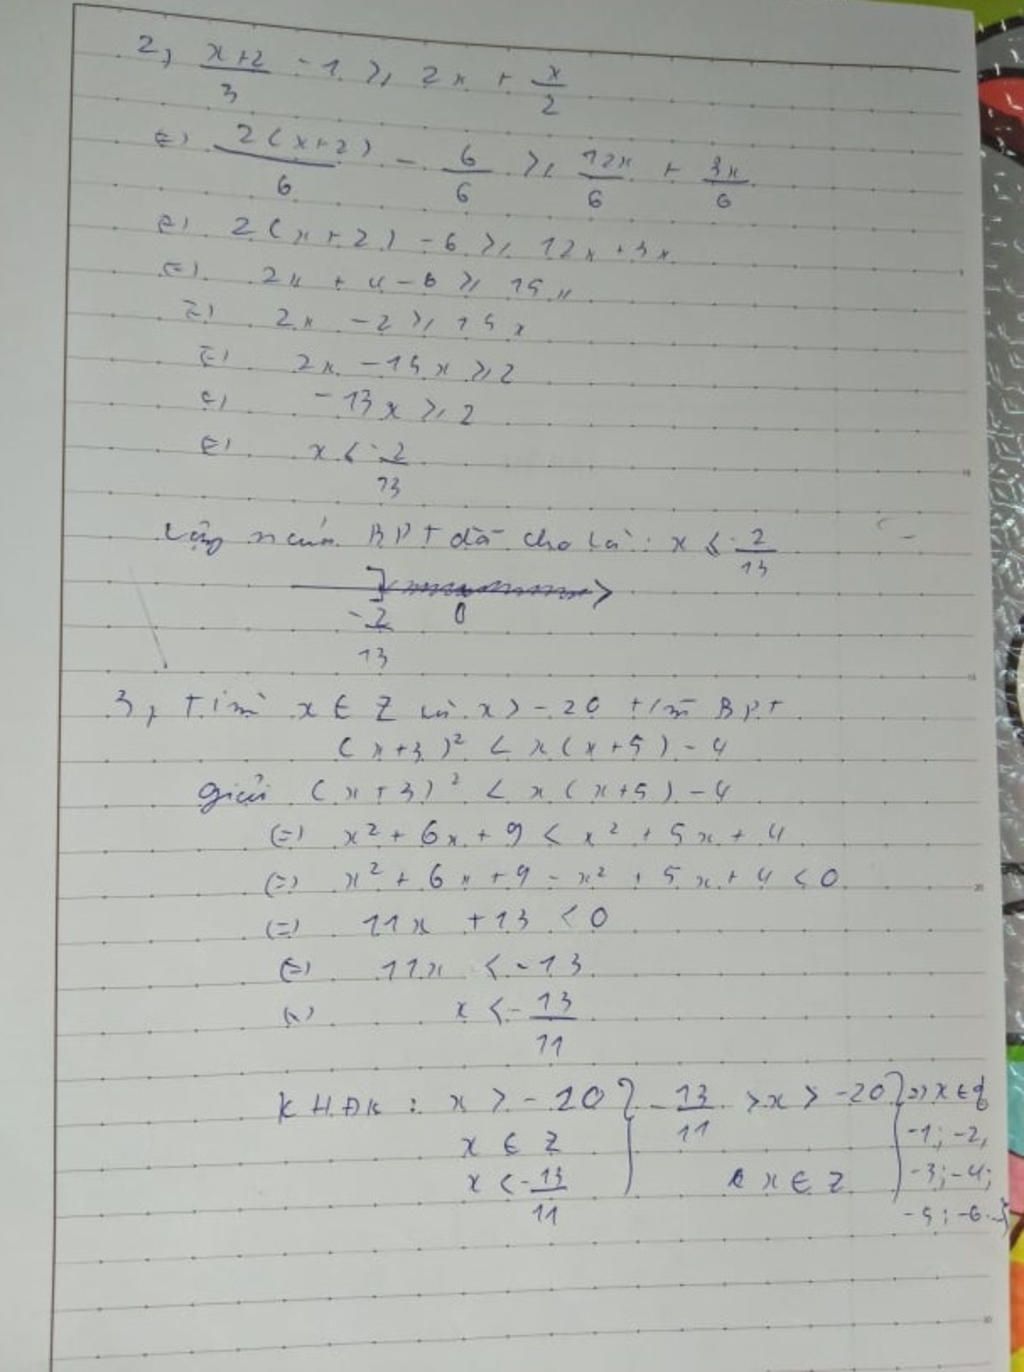 2, (x+2)/3 - 1 ≥ 2x + x/2
(=) 2(x+2)/6 - 6/6 ≥ 12x/6 + 3x/6
(=) 2(x+2) - 6 ≥ 12x + 3x
(=) 2x + 4 - 6 ≥ 15x
(=) 2x - 2 ≥ 15x
(=) 2x - 15x ≥ 2
(=) -13x ≥ 2
(=) x < -2/13
Vậy n của BPT đã cho là: x ≤ -2/13
-2/13 0
3, Tìm x ∈ Z và x > -20 t/m BPT
(x+3)² < x(x+5) - 4
Giải (x+3)² < x(x+5) - 4
(=) x² + 6x + 9 < x² + 5x + 4
(=) x² + 6x + 9 - x² + 5x + 4 < 0
(=) 11x + 13 < 0
(=) 11x < -13
(=) x < -13/11
KHĐK: x > -20 } -13/11 > x > -20 } => x ∈ {
x ∈ Z -1; -2,
x < -13/11 x ∈ Z -3; -4;
-5; -6..}